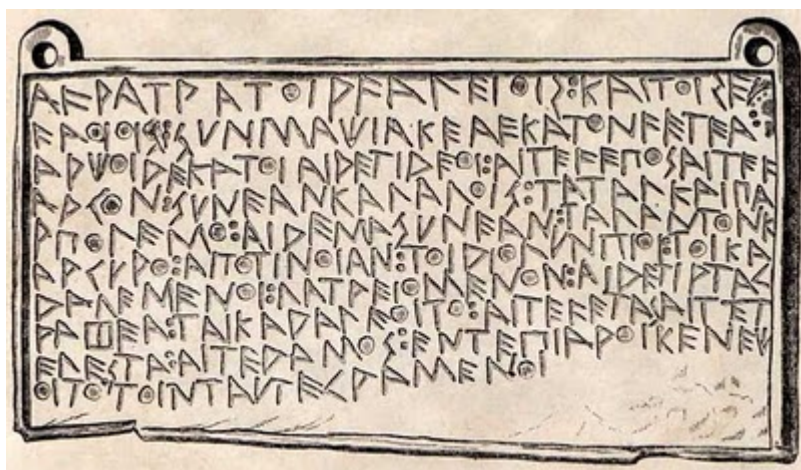 ΑϜΡΑΤΡΑΤΟΙΡϜΑΛΕΙΟΙΣ:ΚΑΙΤΟΙΣΕΡ
ϜΑΟΙΟΙΣ:ΣΥΝΜΑΧΙΑΚΕΑΕΚΑΤΟΝϜΕΤΕΑ:
ΑΡΧΟΙΔΕΚΑΤΟΙΑΙΔΕΤΙΔΕΟΙ:ΑΙΤΕϜΕΠΟΣΑΙΤΕϜ
ΑΡΓΟΝ:ΣΥΝΕΑΝΚΑΛΑΛΟΙΣ:ΤΑΤΑΛΚΑΙΠΑ
ΡΠΟΛΕΜΟ:ΑΙΔΕΜΑΣΥΝΕΑΝ:ΤΑΛΑΝΤΟΝΚ
ΑΡΓΥΡΟ:ΑΠΟΤΙΝΟΙΑΝ:ΤΟΙΔΙΟΛΥΝΠΙΟΙ:ΤΟΙΚΑ
ΔΑΛΕΜΕΝΟΙ:ΛΑΤΡΕΙΟΜΕΝΟΝ:ΑΙΔΕΤΙΡΤΑΓ
ΡΑΦΕΑ:ΤΑΙΚΑΔΑΛΕΟΙΤΟ:ΑΙΤΕϜΕΤΑΣΑΙΤΕΤ
ΕΛΕΣΤΑ:ΑΙΤΕΔΑΜΟΣ:ΕΝΤΕΠΙΑΡΟΙΚΕΝΕΧ
ΟΙΤΟ:ΤΟΙΝΤΑΥΤΕΓΡΑΜΕΝΟΙ